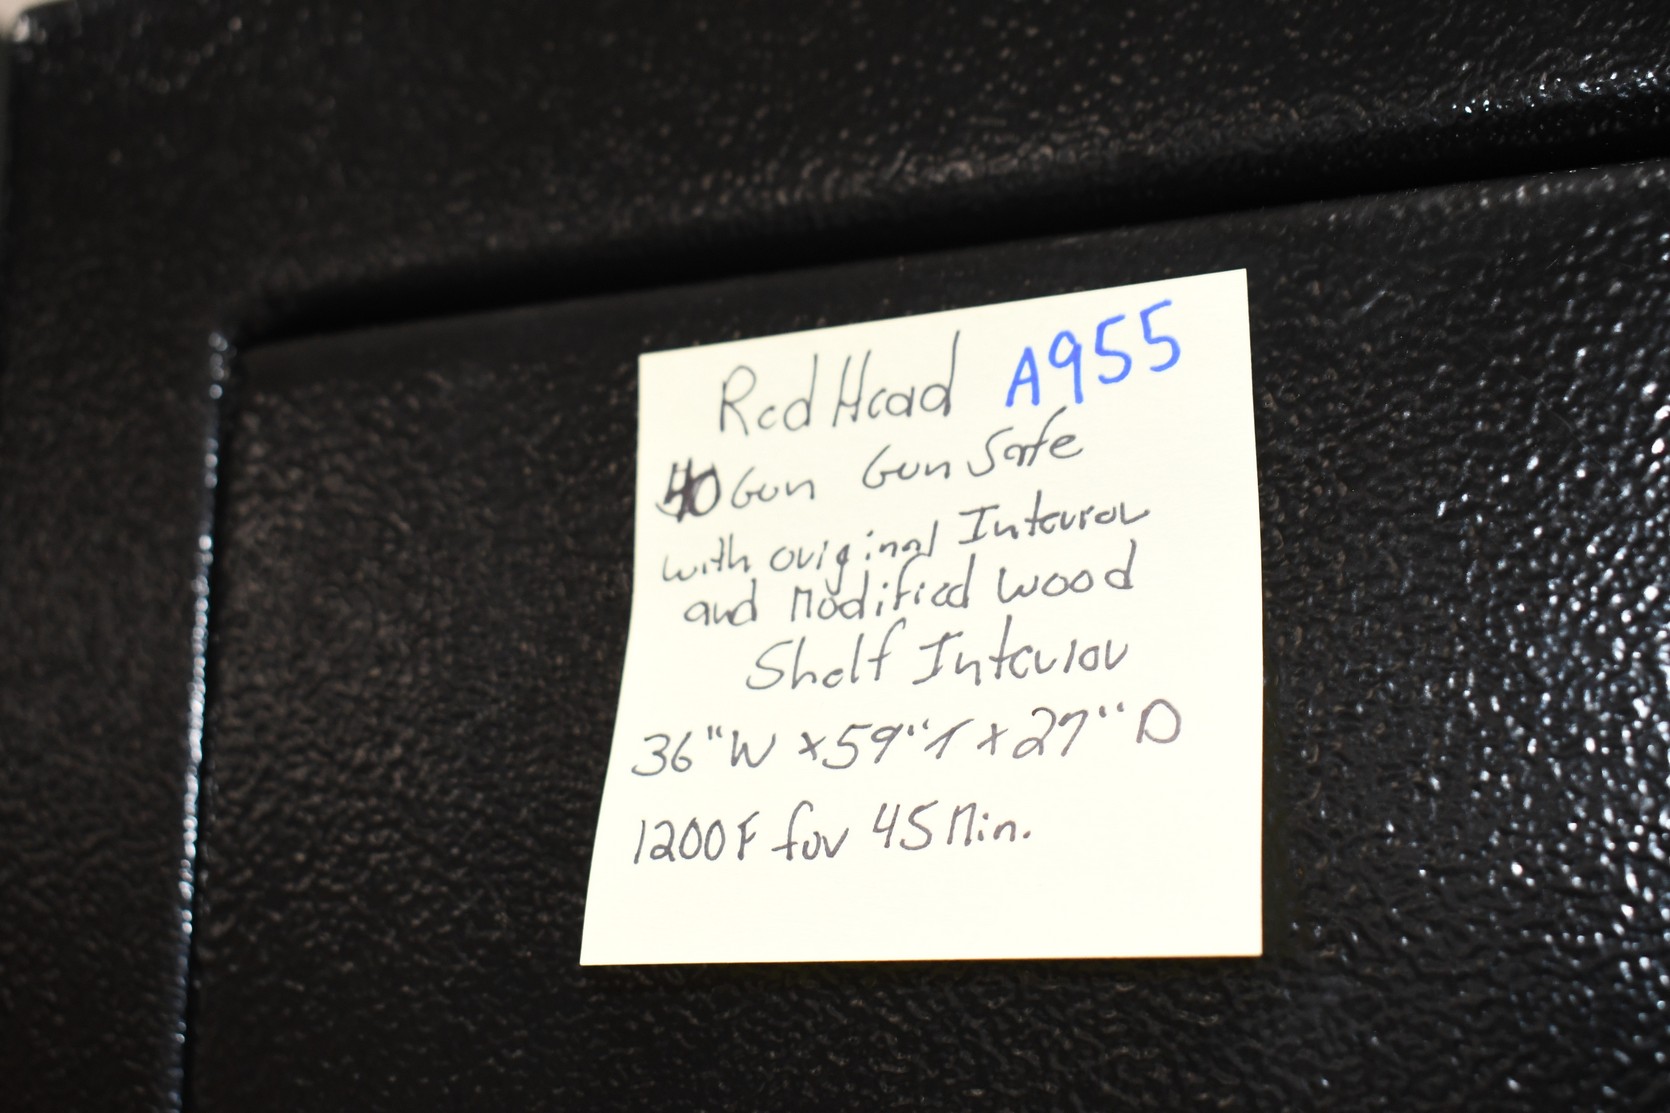 Red Head A955
40 Gun Gun Safe
with original Interior
and Modified Wood
Shelf Interior
36"W x 59"T x 27"D
1200F for 45 Min.